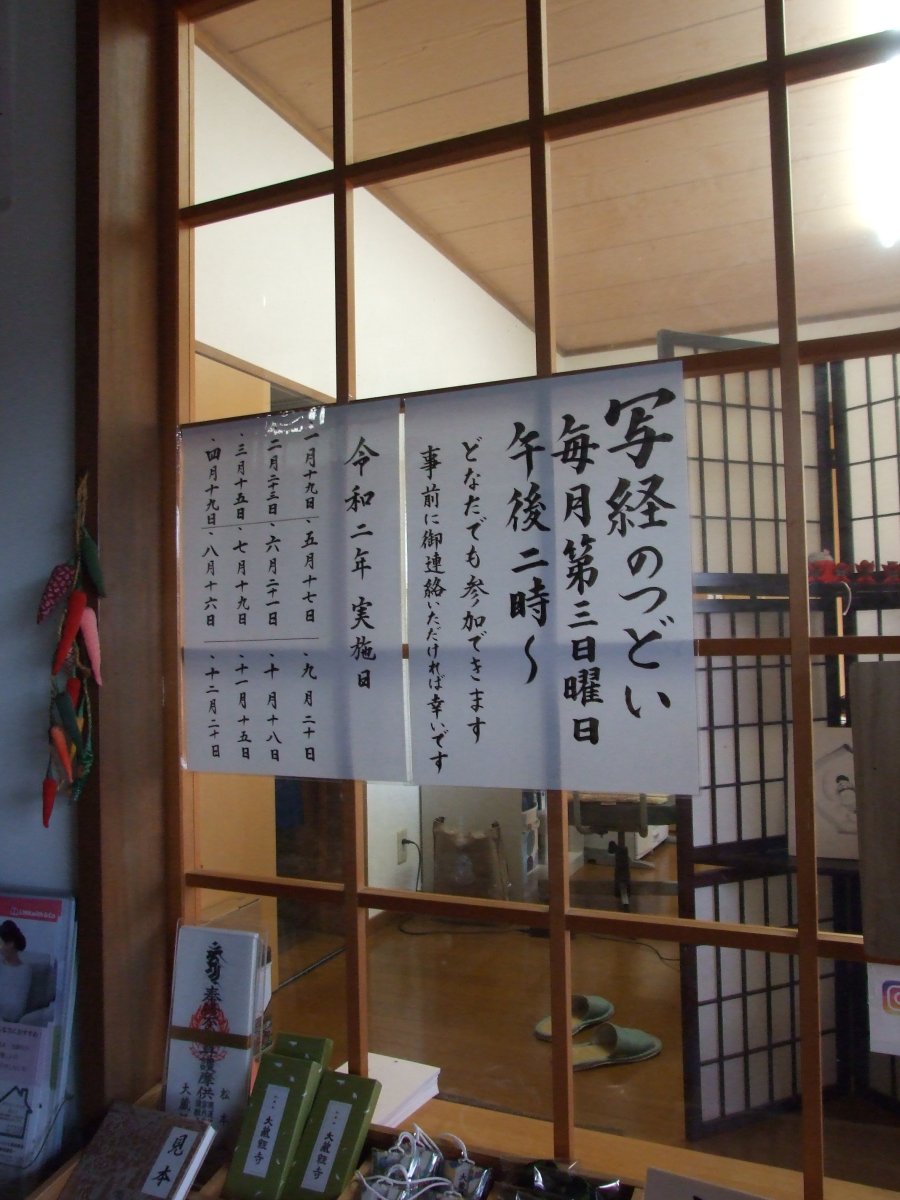 写経のつどい
毎月第三日曜日
午後二時～
どなたでも参加できます
事前に御連絡いただければ幸いです
令和二年 実施日
一月十九日
二月二十三日
・三月十五日
・四月十九日
・五月十七日
・六月二十一日
・七月十九日
・八月十六日
・九月二十日
・十月十八日
・十一月十五日
・十二月二十日
見本
大蔵経寺
大蔵経寺